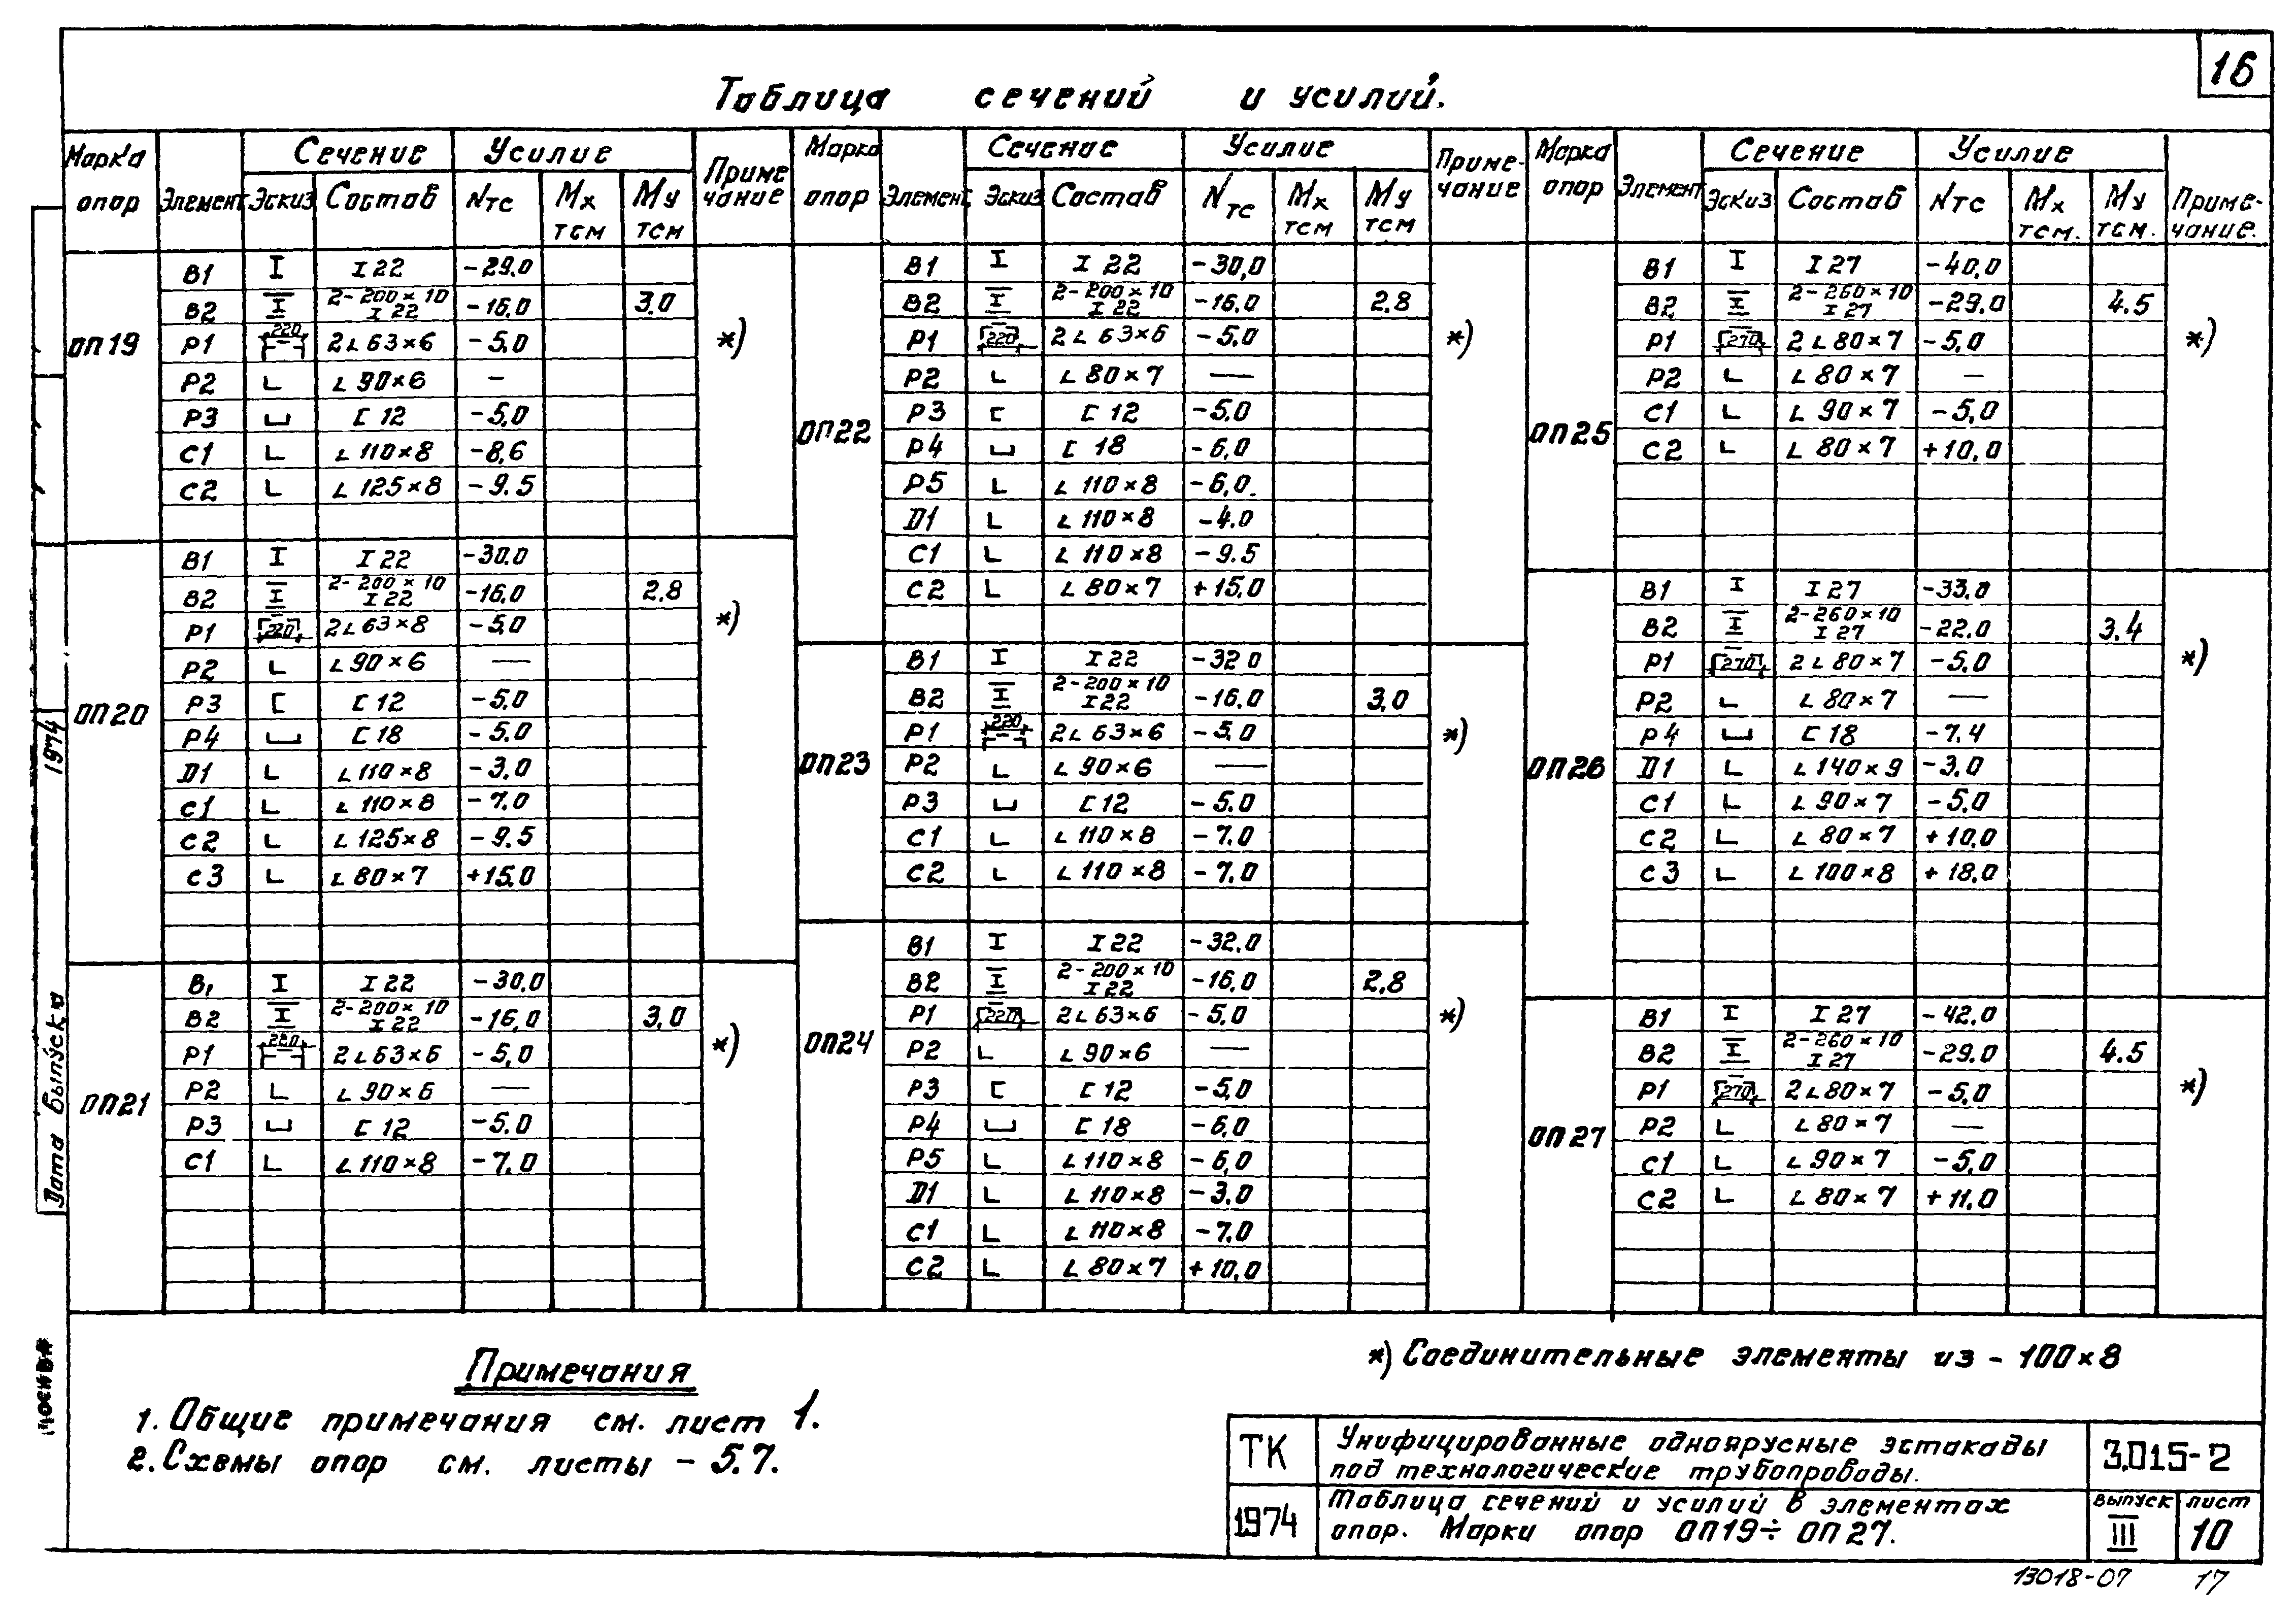 16
Таблица сечений и усилий.
Марка опор Элемент Сечение Усилие Примечание
Эскиз Состав Nтс Mx тсм My тсм
ОП19
В1 I 22 -29.0
В2 2-200×10 I 22 -16.0 3.0
Р1 220 2L 63×6 -5.0 *)
Р2 L 90×6 –
Р3 [ 12 -5.0
С1 L 110×8 -8,6
С2 L 125×8 -9.5
ОП20
В1 I 22 -30.0
В2 2-200×10 I 22 -16.0 2.8
Р1 220 2L 63×8 -5.0 *)
Р2 L 90×6 —
Р3 [ 12 -5.0
Р4 [ 18 -5.0
D1 L 110×8 -3.0
С1 L 110×8 -7.0
С2 L 125×8 -9.5
С3 L 80×7 +15.0
ОП21
В1 I 22 -30.0
В2 2-200×10 I 22 -16,0 3.0
Р1 220 2L 63×6 -5,0 *)
Р2 L 90×6 —
Р3 [ 12 -5.0
С1 L 110×8 -7.0
Марка опор Элемент Сечение Усилие Примечание
Эскиз Состав Nтс Mx тсм My тсм
ОП22
В1 I 22 -30,0
В2 2-200×10 I 22 -16.0 2.8
Р1 220 2L 63×6 -5.0 *)
Р2 L 80×7 —
Р3 [ 12 -5.0
Р4 [ 18 -6,0
Р5 L 110×8 -6,0.
D1 L 110×8 -4.0
С1 L 110×8 -9.5
С2 L 80×7 +15,0
ОП23
В1 I 22 -32 0
В2 2-200×10 I 22 -16.0 3,0
Р1 220 2L 63×6 -5.0 *)
Р2 L 90×6 —
Р3 [ 12 -5.0
С1 L 110×8 -7.0
С2 L 110×8 -7.0
ОП24
В1 I 22 -32.0
В2 2-200×10 I 22 -16,0 2,8
Р1 220 2L 63×6 -5,0 *)
Р2 L 90×6 —
Р3 [ 12 -5,0
Р4 [ 18 -6,0
Р5 L 110×8 -6,0
D1 L 110×8 -3.0
С1 L 110×8 -7.0
С2 L 80×7 +10,0
Марка опор Элемент Сечение Усилие Примечание.
Эскиз Состав Nтс Mx тсм. My тсм.
ОП25
В1 I 27 -40,0
В2 2-260×10 I 27 -29.0 4.5
Р1 270 2L 80×7 -5,0 *)
Р2 L 80×7 –
С1 L 90×7 -5,0
С2 L 80×7 +10,0
ОП26
В1 I 27 -33.0
В2 2-260×10 I 27 -22.0 3.4
Р1 270 2L 80×7 -5.0 *)
Р2 L 80×7 —
Р4 [ 18 -7.4
D1 L 140×9 -3.0
С1 L 90×7 -5,0
С2 L 80×7 +10,0
С3 L 100×8 +18,0
ОП27
В1 I 27 -42.0
В2 2-260×10 I 27 -29.0 4.5
Р1 270 2L 80×7 -5,0 *)
Р2 L 80×7 —
С1 L 90×7 -5,0
С2 L 80×7 +11,0
*) Соединительные элементы из - 100×8
Примечания
1. Общие примечания см. лист 1.
2. Схемы опор см. листы - 5.7.
ТК Унифицированные одноярусные эстакады под технологические трубопроводы. 3.015-2
1974 Таблица сечений и усилий в элементах опор. Марки опор ОП19÷ОП27. выпуск III лист 10
13018-07 17
Дата выпуска 1974